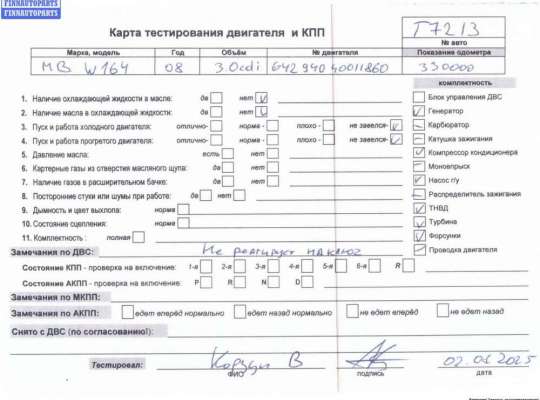 FINNAUTOPARTS
FINNAUTOPARTS
Карта тестирования двигателя и КПП
T7213
№ авто
Марка, модель Год Объём № двигателя Показание одометра
MB W164 08 3.0cdi 642940 40011860 330000
КОМПЛЕКТНОСТЬ
1. Наличие охлаждающей жидкости в масле: да нет
2. Наличие масла в охлаждающей жидкости: да нет
3. Пуск и работа холодного двигателя: отлично- норма - плохо - не завелся-
4. Пуск и работа прогретого двигателя: отлично- норма - плохо - не завелся-
5. Давление масла: есть нет
6. Картерные газы из отверстия масляного щупа: да нет
7. Наличие газов в расширительном бачке: да нет
8. Посторонние стуки или шумы при работе: да нет
9. Дымность и цвет выхлопа: норма
10. Состояние сцепления: норма
11. Комплектность : полная
Блок управления ДВС
Генератор
Карбюратор
Катушка зажигания
Компрессор кондиционера
Моновпрыск
Насос г/у
Распределитель зажигания
ТНВД
Турбина
Форсунки
Проводка двигателя
Замечания по ДВС: Не реагирует на ключ
Состояние КПП - проверка на включение: 1-я 2-я 3-я 4-я 5-я 6-я R
Состояние АКПП - проверка на включение: P R N D
Замечания по МКПП:
Замечания по АКПП: едет вперёд нормально едет назад нормально не едет вперёд не едет назад
Снято с ДВС (по согласованию!):
Тестировал: В 02.01.2025
ФИО подпись дата